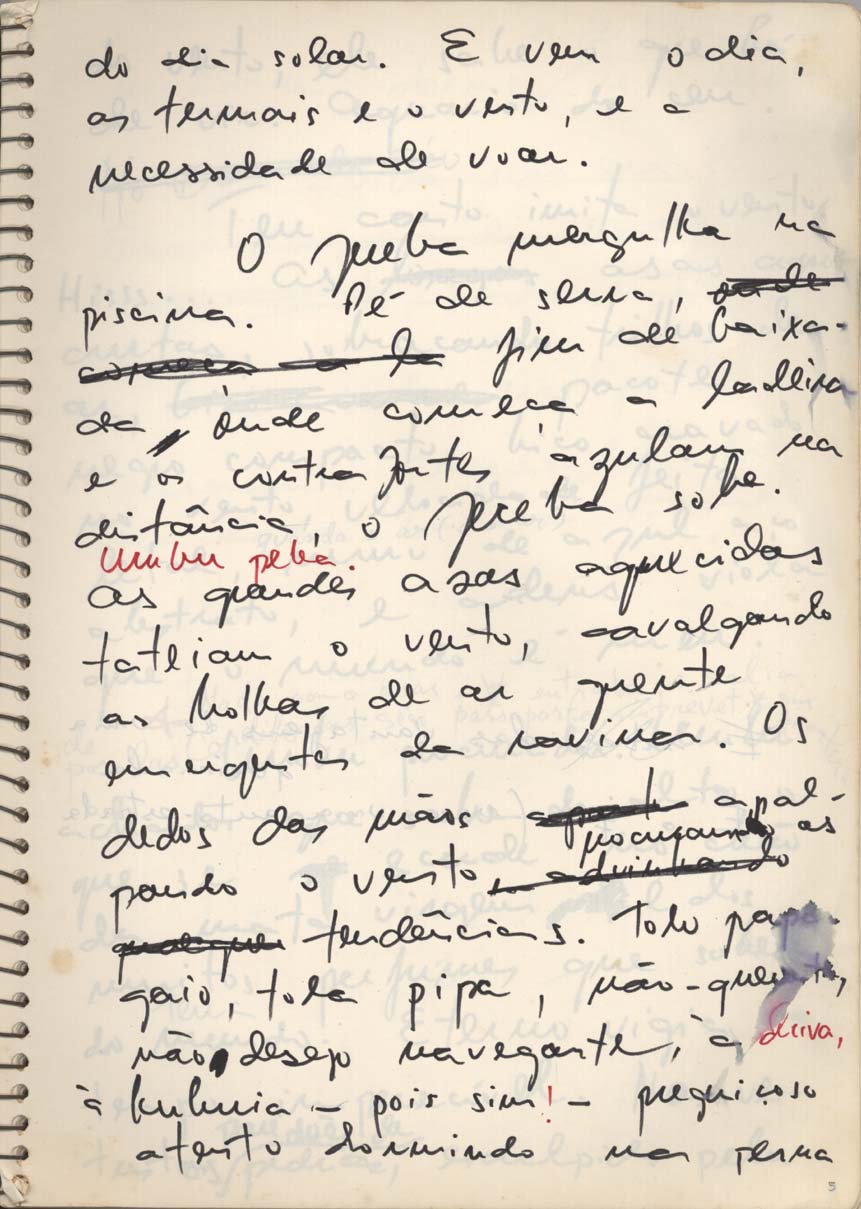 do dia solar. E vem o dia,
as termais e o vento, e a
necessidade de voar.
O jereba mergulha na
piscina. Pé de serra, onde
começa a la fim de baixa-
da, onde começa a ladeira
e os contrafortes azulam na
distância, o jereba sobe.
Urubu peba.
As grandes asas aquecidas
tateiam o vento, cavalgando
as bolhas de ar quente
emergentes da ravina. Os
dedos das mãos apal-
procurando as
pando o vento, adivinhando
tendências. Tolo papa-
gaio, tola pipa, não-quero-te,
não desejo navegante, à deriva,
à bubuia – pois sim! – preguiçoso
atento dormindo na perna
5